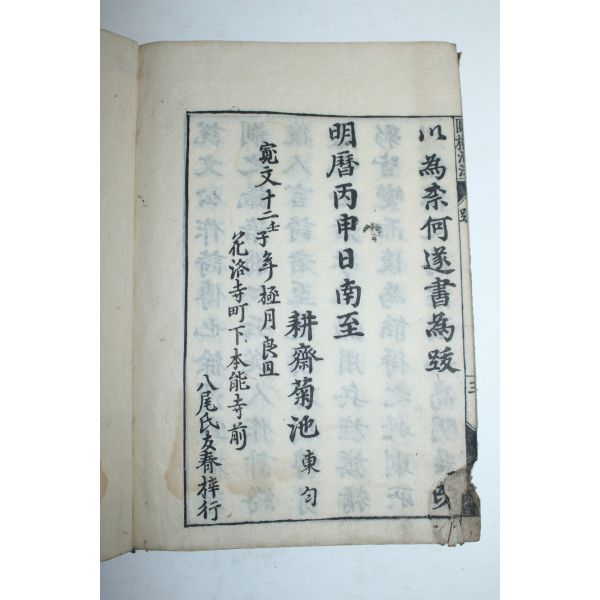 以為柰何遂書為跋
明曆丙申日南至
耕齋菊池東勻
寛文十二壬子年極月良旦
花洛寺町下本能寺前
八尾氏友春梓行
跋
三